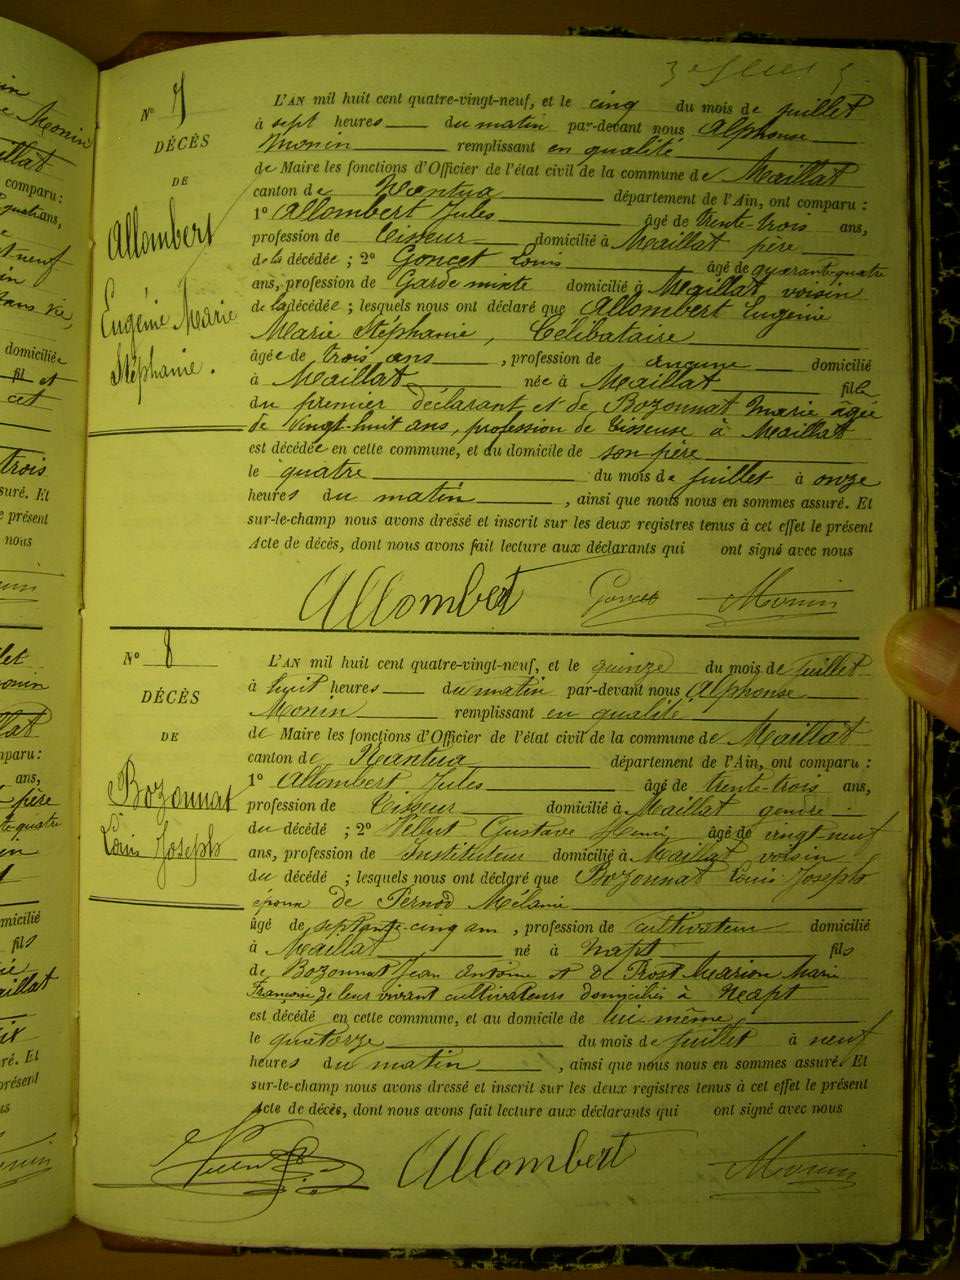 3e
N° 7
DÉCÈS
DE
Allombert
Eugénie Marie
Stéphanie.
L'AN mil huit cent quatre-vingt-neuf, et le cinq du mois de juillet
à sept heures du matin par-devant nous Alphonse
Monin remplissant en qualité
de Maire les fonctions d'Officier de l'état civil de la commune de Maillat
canton de Nantua département de l'Ain, ont comparu :
1° Allombert Jules âgé de trente-trois ans,
profession de Tisseur domicilié à Maillat père
de la décédée ; 2° Goncet Louis âgé de quarant-quatre
ans, profession de Garde mixte domicilié à Maillat voisin
de la décédée ; lesquels nous ont déclaré que Allombert Eugénie
Marie Stéphanie, Célibataire
âgée de trois ans , profession de aucune domicilié
à Maillat née à Maillat fille
du premier déclarant et de Bozonnat Marie âgée
de vingt-huit ans, profession de Tisseuse à Maillat
est décédée en cette commune, et au domicile de son père
le quatre du mois de juillet à onze
heures du matin , ainsi que nous nous en sommes assuré. Et
sur-le-champ nous avons dressé et inscrit sur les deux registres tenus à cet effet le présent
Acte de décès, dont nous avons fait lecture aux déclarants qui ont signé avec nous
Allombert Goncet Monin
N° 8
DÉCÈS
DE
Bozonnat
Louis Joseph
L'AN mil huit cent quatre-vingt-neuf, et le quinze du mois de juillet
à huit heures du matin par-devant nous Alphonse
Monin remplissant en qualité
de Maire les fonctions d'Officier de l'état civil de la commune de Maillat
canton de Nantua département de l'Ain, ont comparu :
1° Allombert Jules âgé de trente-trois ans,
profession de Tisseur domicilié à Maillat gendre
du décédé ; 2° Gustave Henri âgé de vingt neuf
ans, profession de Instituteur domicilié à Maillat voisin
du décédé ; lesquels nous ont déclaré que Bozonnat Louis Joseph
époux de Pernod Mélanie
âgé de septante-cinq ans , profession de cultivateur domicilié
à Maillat né à Napt fils
de Bozonnat Jean Antoine et de Prost Marion Marie
Françoise de leur vivant cultivateurs domiciliés à Napt
est décédé en cette commune, et au domicile de lui même
le quatorze du mois de juillet à neuf
heures du matin , ainsi que nous nous en sommes assuré. Et
sur-le-champ nous avons dressé et inscrit sur les deux registres tenus à cet effet le présent
Acte de décès, dont nous avons fait lecture aux déclarants qui ont signé avec nous
Allombert Monin